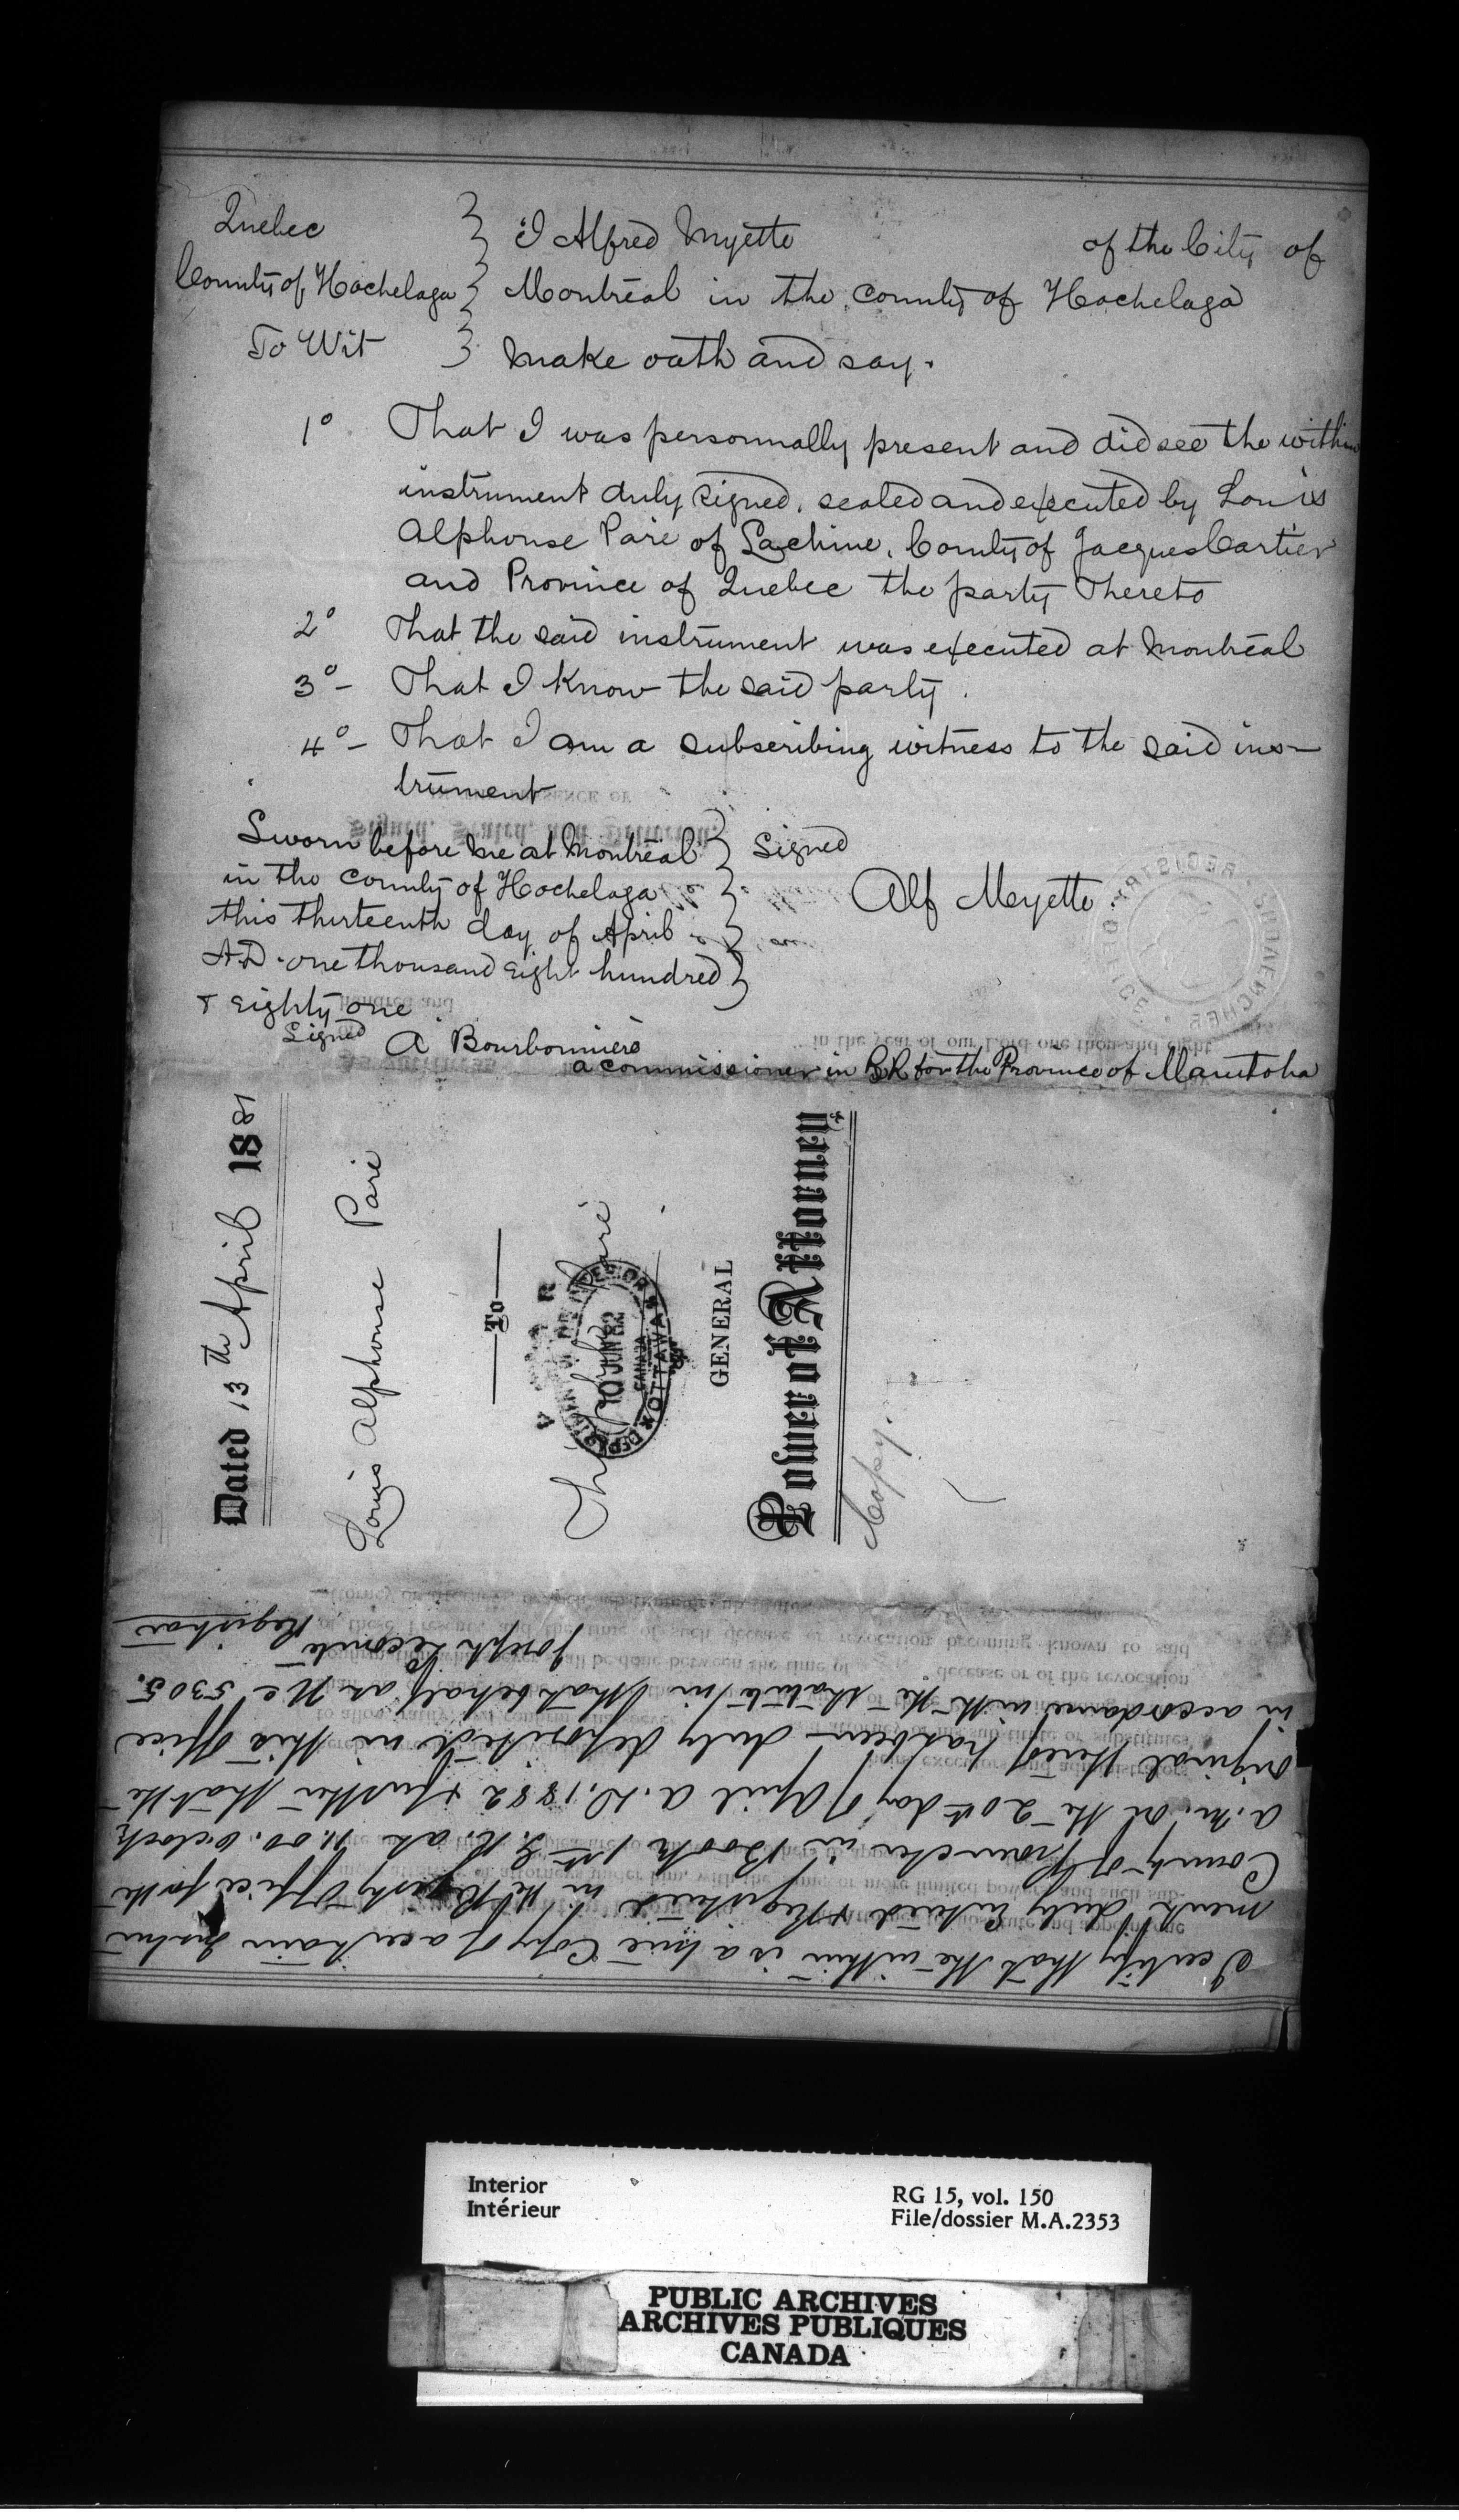 Quebec } I Alfred Myette of the City of
County of Hochelaga } Montreal in the County of Hochelaga
To Wit } make oath and say.
1º That I was personnally present and did see the within
instrument duly signed, sealed and executed by Louis
Alphonse Paré of Lachine, County of Jacques Cartier
and Province of Quebec the party thereto
2º That the said instrument was executed at Montreal
3º- That I know the said party.
4º- That I am a subscribing witness to the said ins-
trument
Sworn before me at Montreal } Signed
in the County of Hochelaga } Alf Meyette
this thirteenth day of April
A.D. one thousand eight hundred
& eighty one
Signed A Bourbonnière
a commissioner in B.R for the Province of Manitoba
Dated 13th April 1881
Louis Alphonse Paré
To
Paré
DEPARTMENT OF THE INTERIOR
10 JUN 82
CANADA
OTTAWA
GENERAL
Power of Attorney
Copy.
I certify that the within is a true Copy of a certain Instru
ment duly Entered & Registered in the Registry Office for the
County of Provencher in Book 1st G.R. at 11.00. oclock
a.m. of the 20th day of April A.D. 1882 & further that the
original thereof has been duly deposited in this office
in accordance with the statute in that behalf as No 5305.
Joseph Lecomte
Registrar
REGISTRY OFFICE
PROVENCHER
Interior
Intérieur
RG 15, vol. 150
File/dossier M.A.2353
PUBLIC ARCHIVES
ARCHIVES PUBLIQUES
CANADA